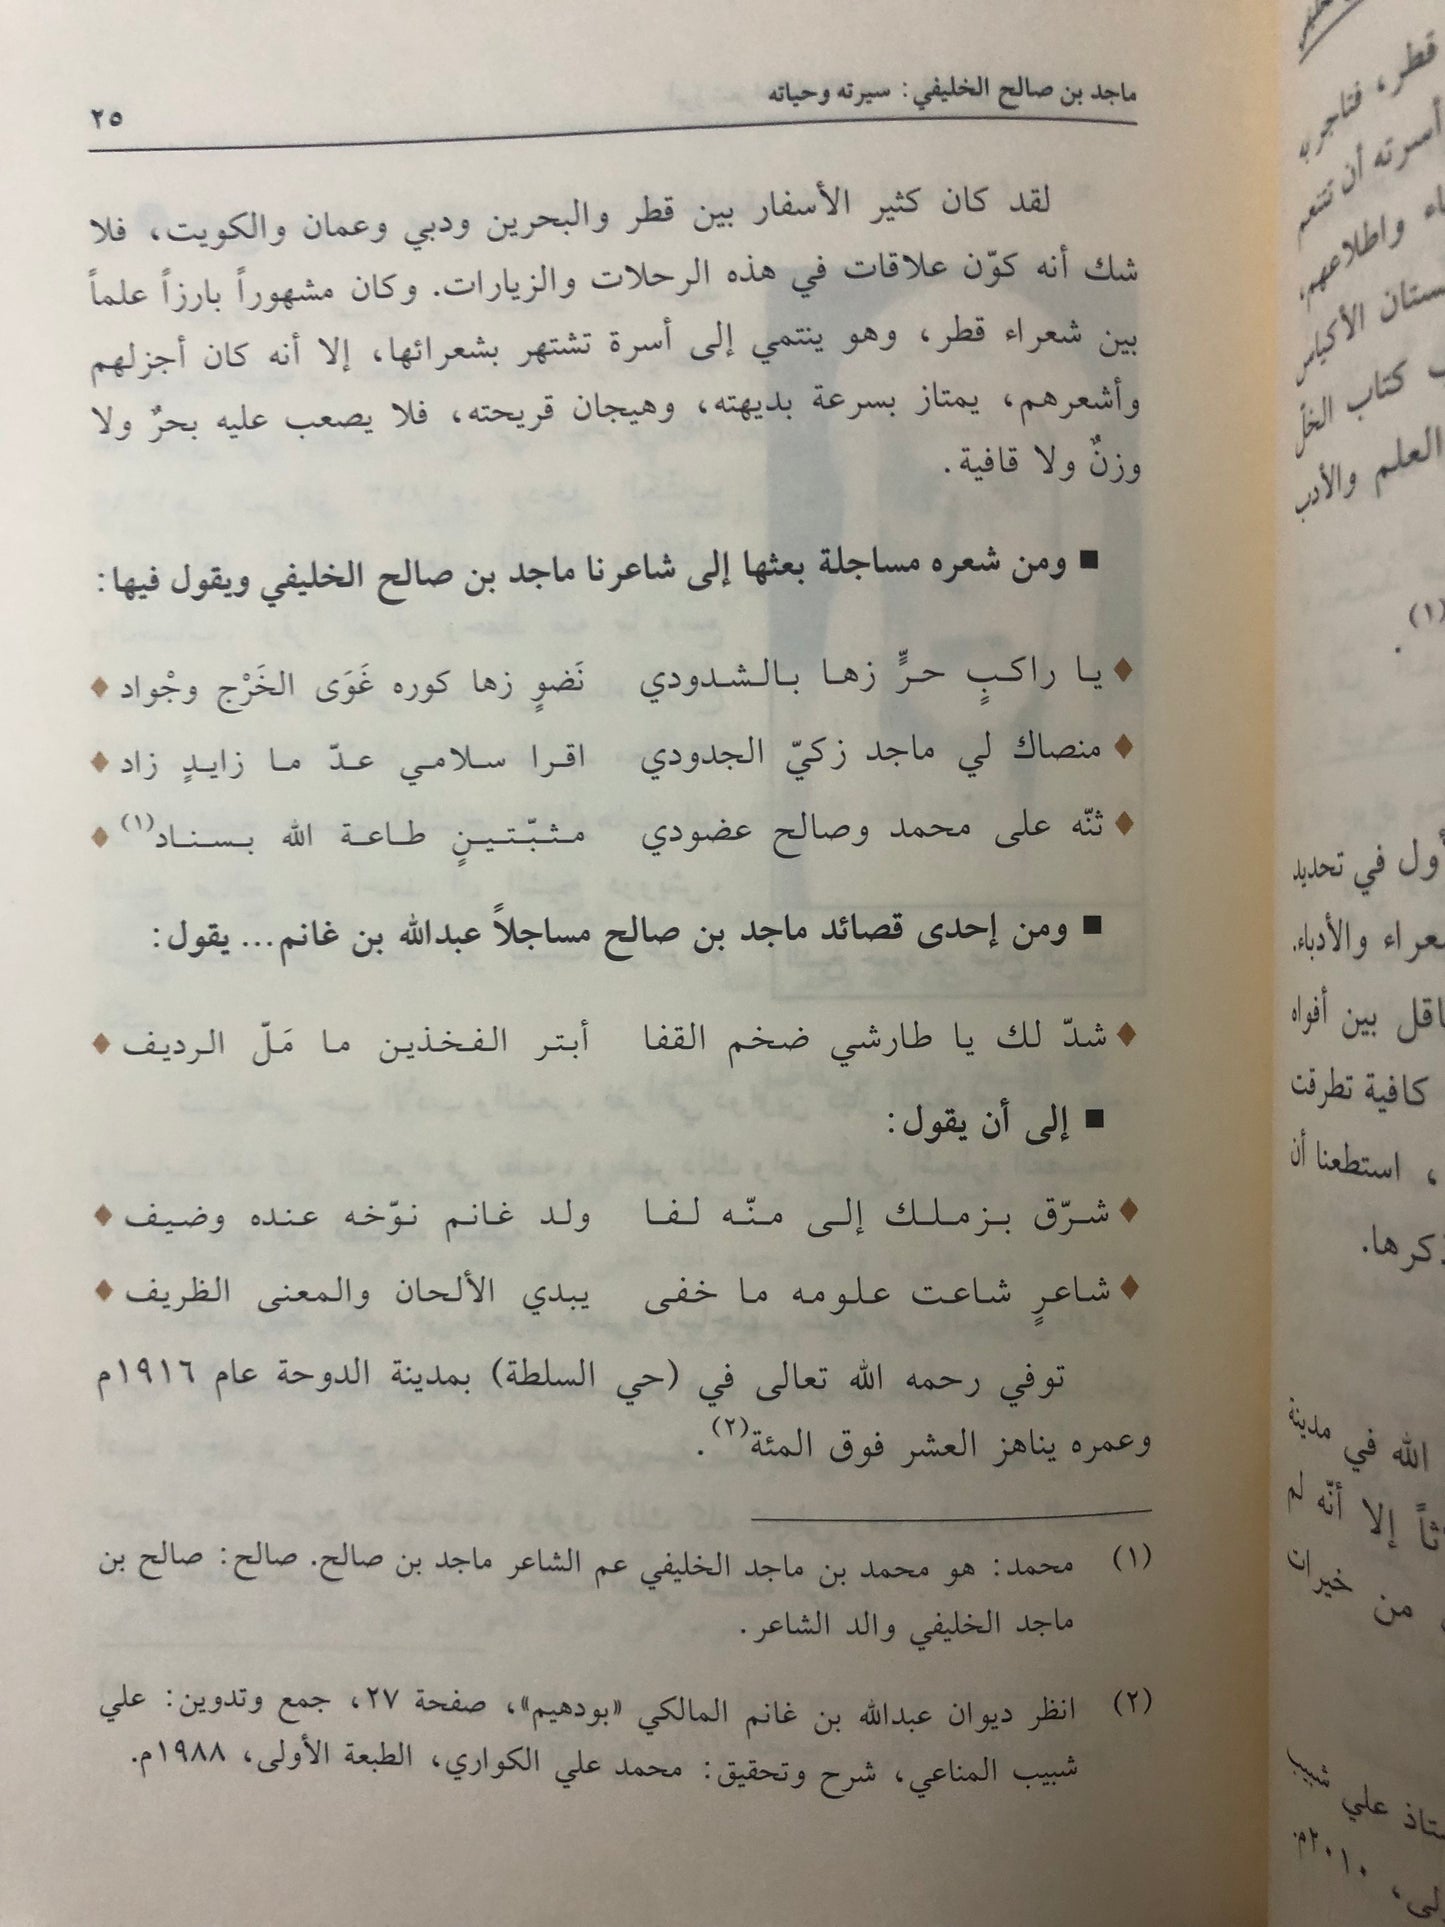 ماجد بن صالح الخليفي: سيرته وحياته
٢٥
لقد كان كثير الأسفار بين قطر والبحرين ودبي وعمان والكويت، فلا
شك أنه كوّن علاقات في هذه الرحلات والزيارات. وكان مشهوراً بارزاً علماً
بين شعراء قطر، وهو ينتمي إلى أسرة تشتهر بشعرائها، إلا أنه كان أجزلهم
وأشعرهم، يمتاز بسرعة بديهته، وهيجان قريحته، فلا يصعب عليه بحرٌ ولا
وزنٌ ولا قافية.
■ ومن شعره مساجلة بعثها إلى شاعرنا ماجد بن صالح الخليفي ويقول فيها:
♦ يا راكبٍ حرٍّ زها بالشدودي نَضوٍ زها كوره غَوَى الخَرْج وجْواد ♦
♦ منصاك لي ماجد زكيّ الجدودي اقرا سلامي عدّ ما زايدٍ زاد ♦
♦ ثنّه على محمد وصالح عضودي مثبّتينٍ طاعة الله بسناد(١) ♦
■ ومن إحدى قصائد ماجد بن صالح مساجلاً عبدالله بن غانم... يقول:
♦ شدّ لك يا طارشي ضخم القفا أبتر الفخذين ما مَلّ الرديف ♦
■ إلى أن يقول:
♦ شرّق بزملك إلى منّه لفا ولد غانم نوّخه عنده وضيف ♦
♦ شاعرٍ شاعت علومه ما خفى يبدي الألحان والمعنى الظريف ♦
توفي رحمه الله تعالى في (حي السلطة) بمدينة الدوحة عام ١٩١٦م
وعمره يناهز العشر فوق المئة(٢).
(١) محمد: هو محمد بن ماجد الخليفي عم الشاعر ماجد بن صالح. صالح: صالح بن
ماجد الخليفي والد الشاعر.
(٢) انظر ديوان عبدالله بن غانم المالكي «بودهيم»، صفحة ٢٧، جمع وتدوين: علي
شبيب المناعي، شرح وتحقيق: محمد علي الكواري، الطبعة الأولى، ١٩٨٨م.
قطر، فتاجر به
أسرته أن تنعم
واطلاعهم،
بستان الأكياس
كتاب الخلّ
العلم والأدب
(١).
أول في تحديد
الشعراء والأدباء.
بين أفواه
كافية تطرقت
، استطعنا أن
ذكرها.
الله في مدينة
إلا أنّه لم
من خيران
علي شبيب
٢٠١٠م.